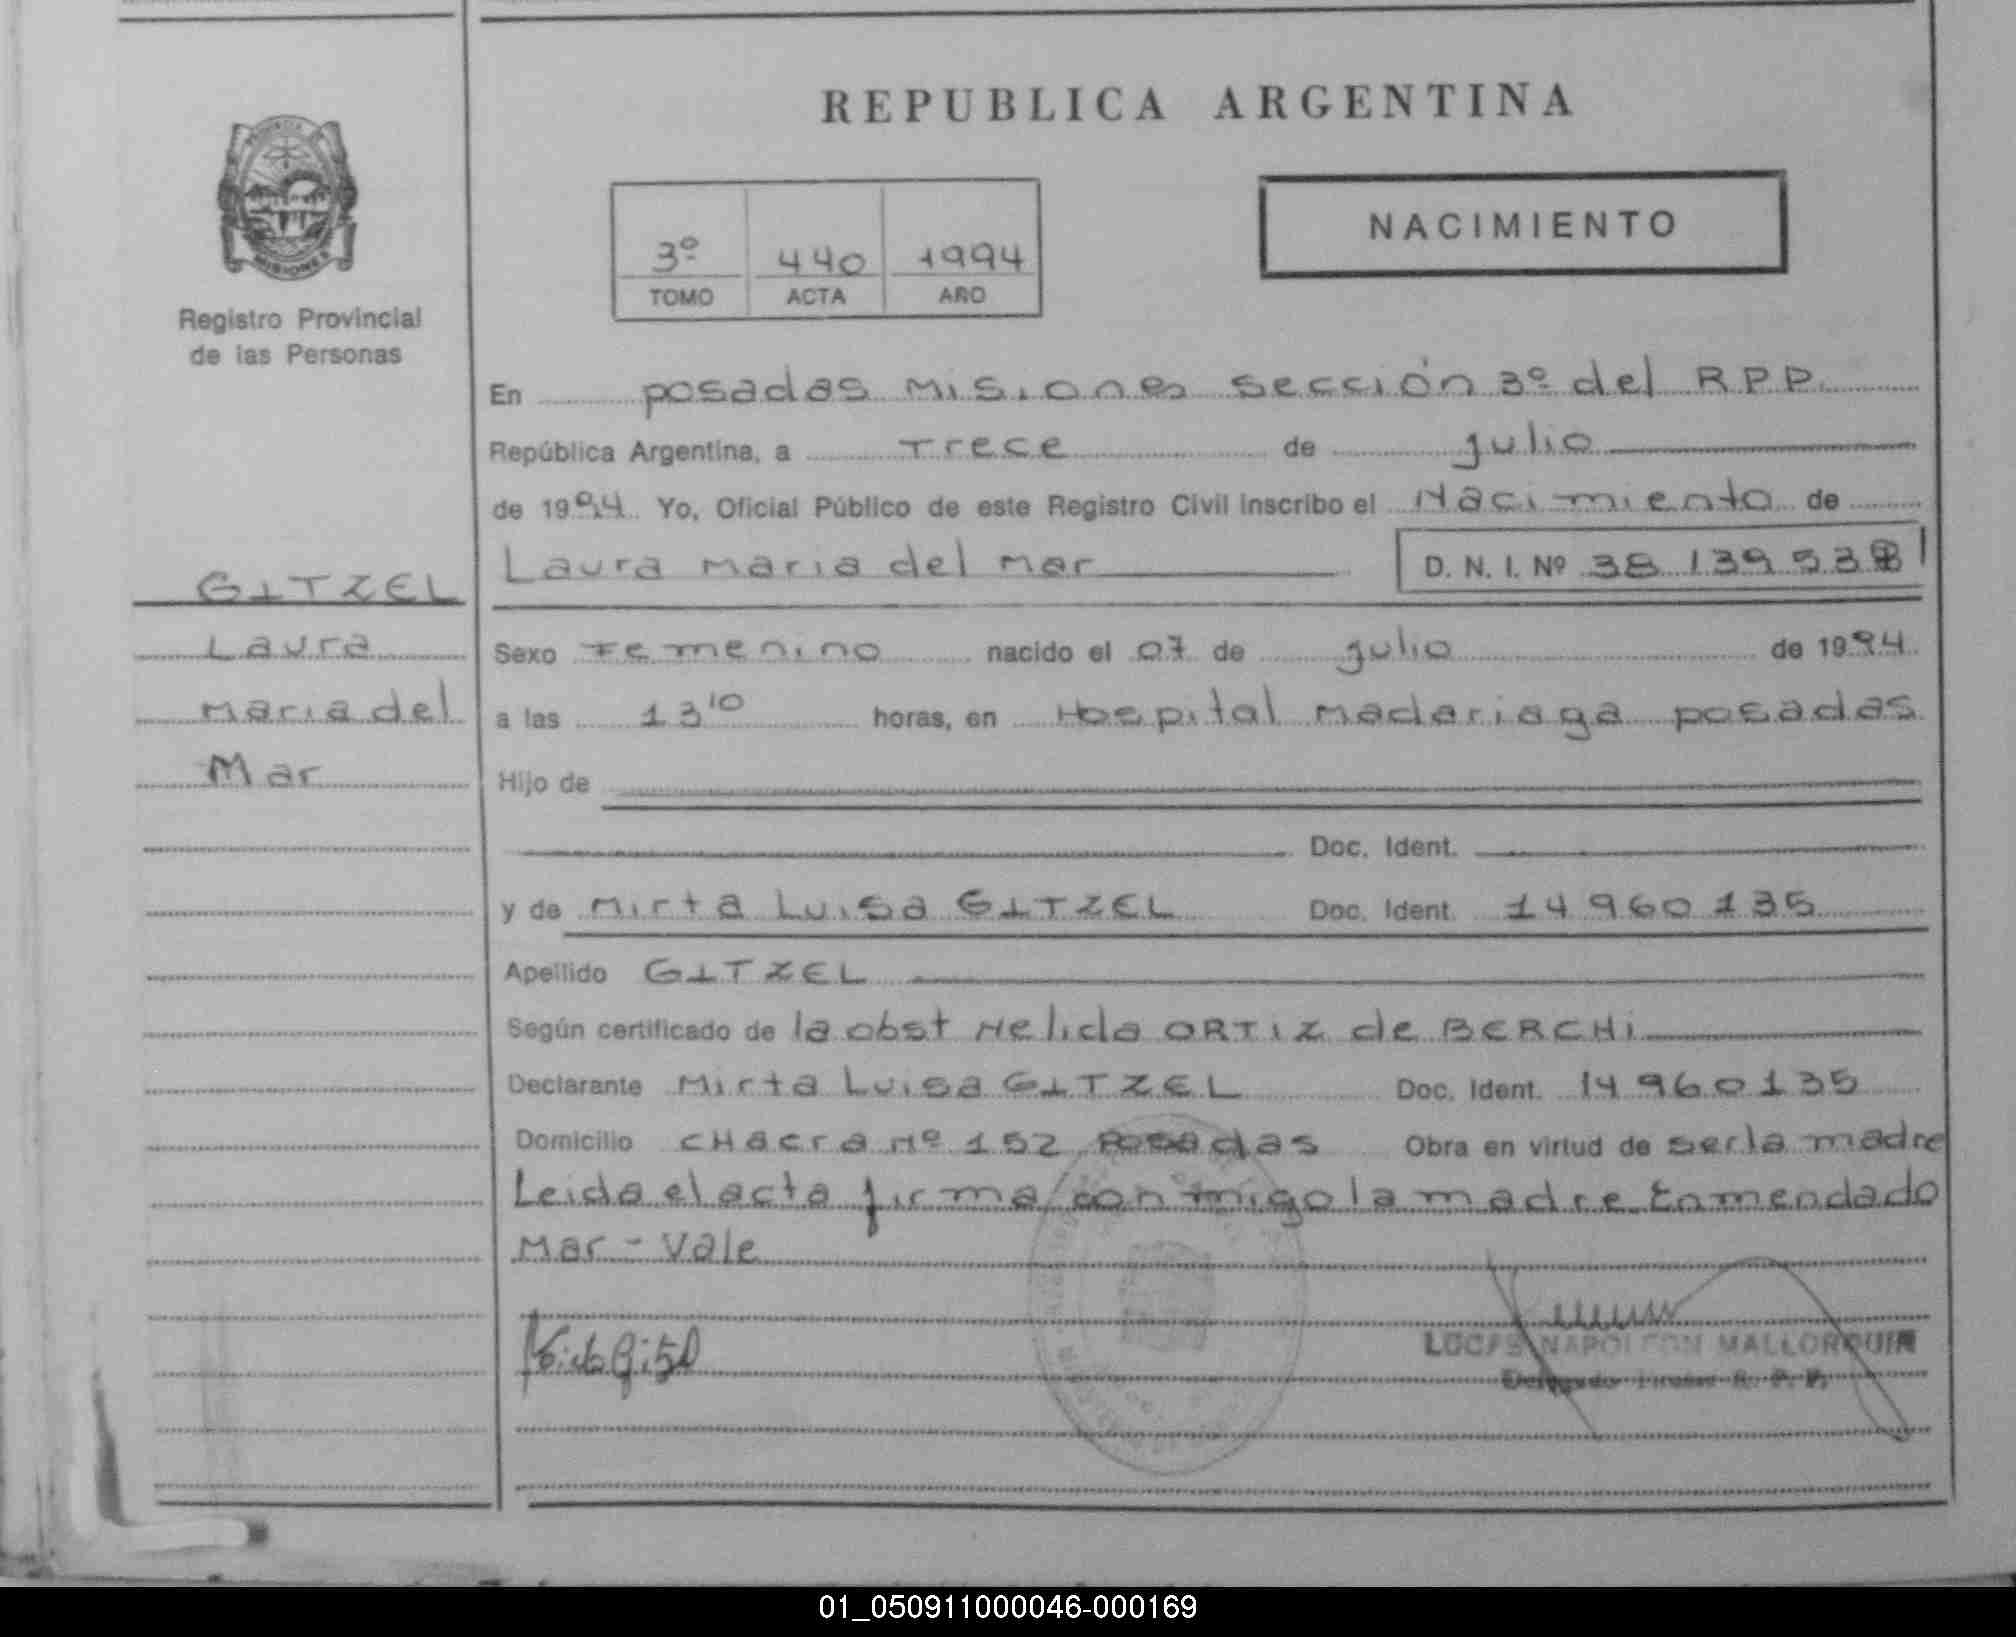 REPUBLICA ARGENTINA
PROVINCIA
MISIONES
Registro Provincial
de las Personas
3º 440 1994
TOMO ACTA AÑO
NACIMIENTO
En posadas Misiones sección 3º del R.P.P.
República Argentina, a Trece de julio
de 1994 Yo, Oficial Público de este Registro Civil inscribo el Nacimiento de
Laura maria del mar D. N. I. Nº 38 139 53
GITZEL
Laura
maria del
Mar
Sexo Femenino nacido el 07 de julio de 1994
a las 13 10 horas, en Hospital madariaga posadas
Hijo de
Doc. Ident.
y de Mirta Luisa GITZEL Doc. Ident. 14 960 135
Apellido GITZEL
Según certificado de la obst Nelida ORTIZ de BERCHi
Declarante Mirta Luisa GITZEL Doc. Ident. 14 960 135
Domicilio CHacra Nº 152 Posadas Obra en virtud de serla madre
Leida el acta firma con migo la madre Enmendado
Mar - Vale
LUCAS NAPOLEON MALLORQUIN
Delegado R. P. P.
01_050911000046-000169